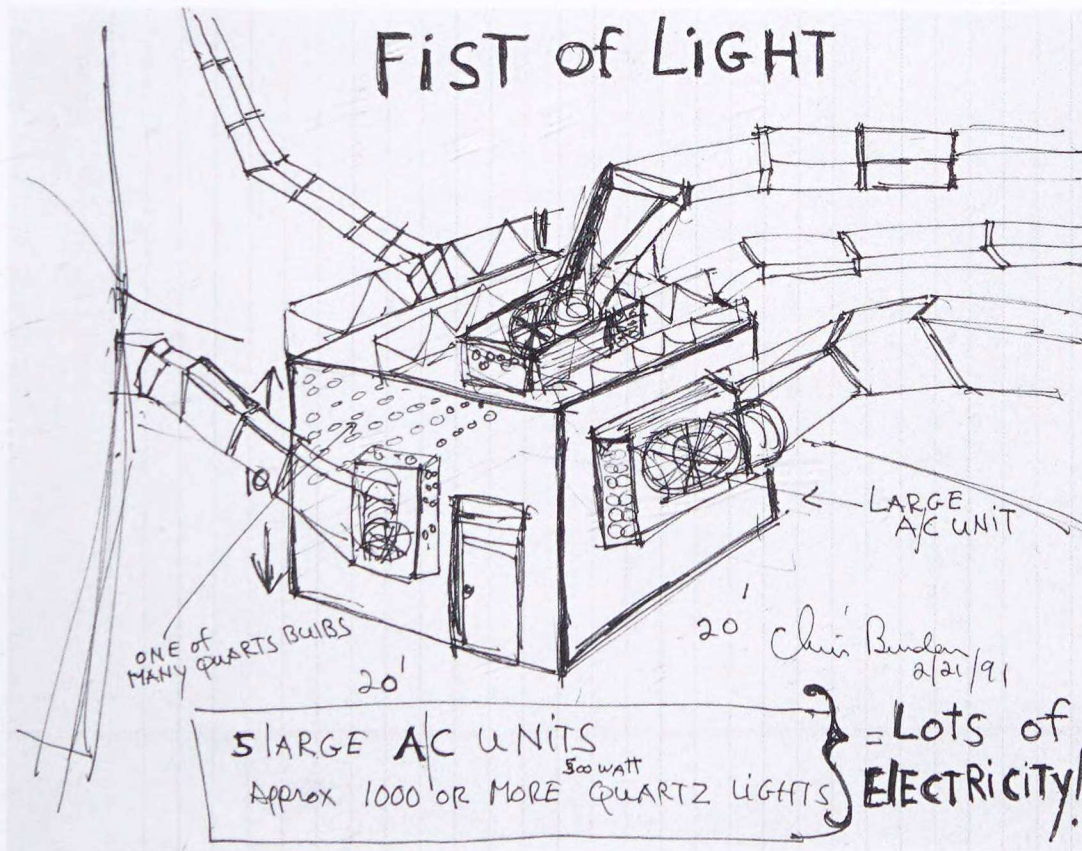 FiST of LiGHT
10'
LARGE
A/C UNiT
ONE of
MANY QUARTS BULBS
20'
20'
Chris Burden
2/21/91
5 lARGE AC UNiTS
500 WATT
Approx 1000 OR MORE QUARTZ LiGHTS
= LOTS of
ElECTRiCiTY!